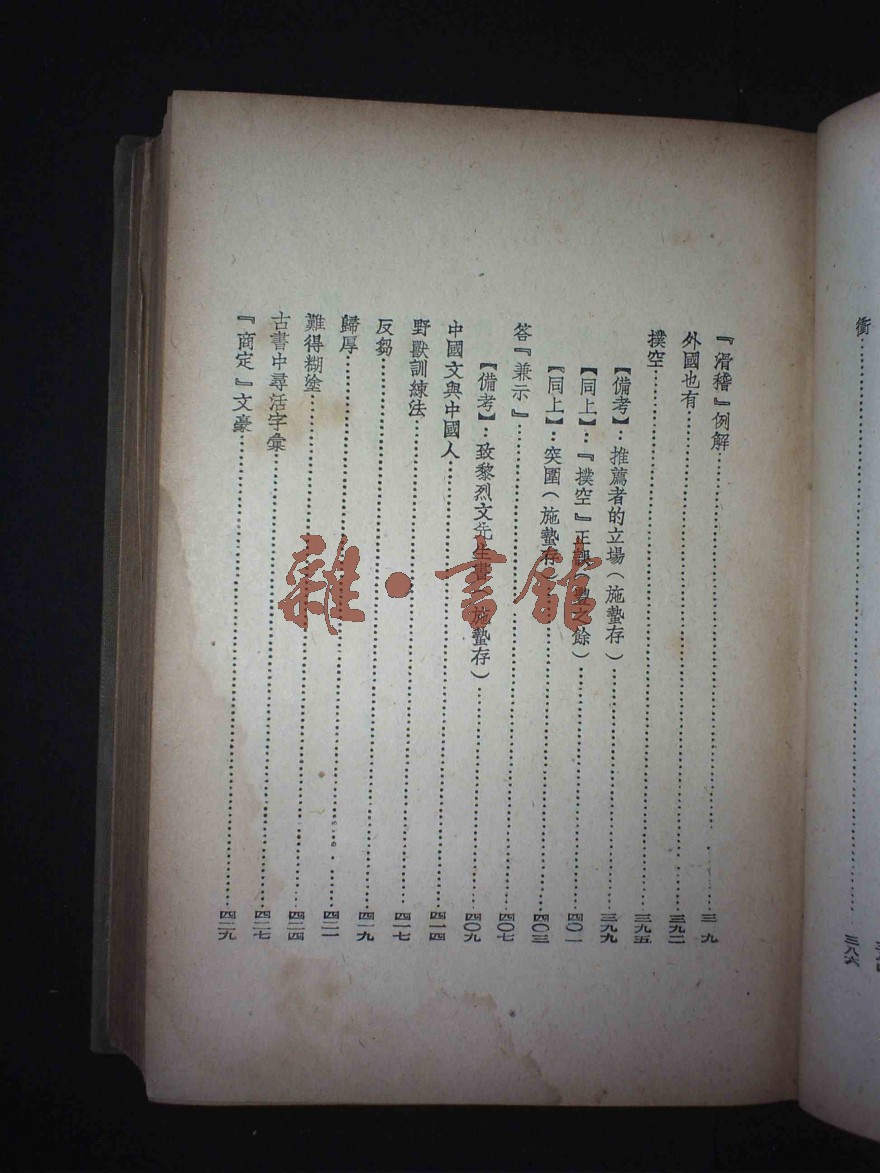 衝……三八六
『滑稽』例解……三 九
外國也有……三九二
撲空……三九五
【備考】：推薦者的立場（施蟄存）……三九九
【同上】：『撲空』正誤（豐之餘）……四〇一
【同上】：突圍（施蟄存）……四〇三
答『兼示』……四〇七
【備考】：致黎烈文先生書（施蟄存）……四〇九
中國文與中國人……四一四
野獸訓練法……四一七
反芻……四一九
歸厚……四二一
難得糊塗……四二四
古書中尋活字彙……四二七
『商定』文豪……四二九
雜·書館